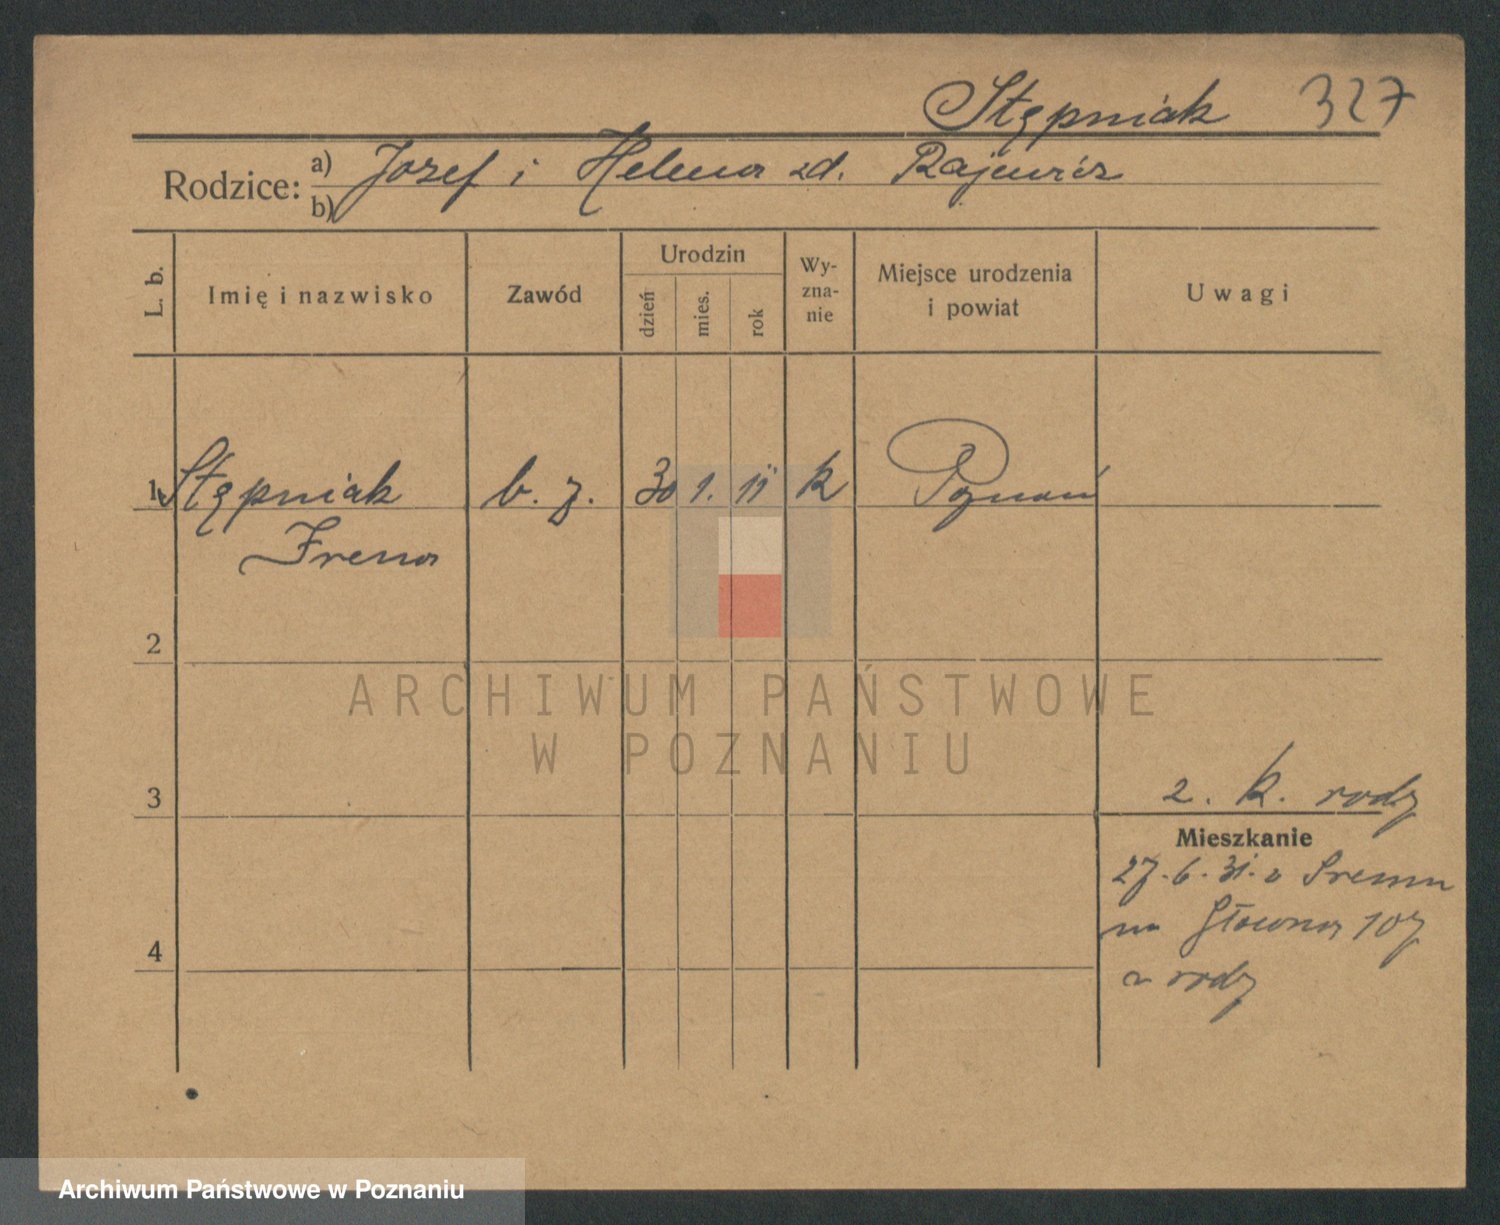 Stępniak 327
Rodzice: a) Józef i Helena zd. Rajewicz
b)
L. b.
Imię i nazwisko
Zawód
Urodzin
dzień
mies.
rok
Wy-
zna-
nie
Miejsce urodzenia
i powiat
Uwagi
1 Stępniak b. z. 30 1. 11 k Poznań
Irena
2
3
2. k. rodz
Mieszkanie
27.6.31. z Śremu
na Główna 107
4
z rodz
ARCHIWUM PAŃSTWOWE
W POZNANIU
Archiwum Państwowe w Poznaniu